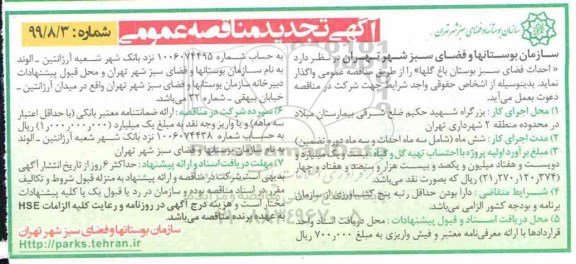 سازمان بوستانها و فضای سبز شهر تهران
آگهی تجدید مناقصه عمومی
شماره: ۹۹/۸/۳
سازمان بوستانها و فضای سبز شهر تهران در نظر دارد
« احداث فضای سبز بوستان باغ گلها» را از طریق مناقصه عمومی واگذار
نماید. بدینوسیله از اشخاص حقوقی واجد شرایط جهت شرکت در مناقصه
دعوت بعمل می‌آید.
۱) محل اجرای کار: بزرگراه شهید حکیم ضلع شرقی بیمارستان میلاد
در محدوده منطقه ۲ شهرداری تهران
۲) مدت اجرای کار: شش ماه (شامل سه ماه احداث و سه ماه دوره تضمین)
۳) مبلغ برآورد اولیه پروژه با احتساب تهیه گل و گیاه: بیست و یک میلیارد و
دویست و هفتاد میلیون و یکصد و بیست هزار و سیصد و هفتاد و چهار
(۲۱,۲۷۰,۱۲۰,۳۷۴) ریال که بصورت نقد می‌باشد.
۴) شرایط متقاضی: دارا بودن حداقل رتبه پنج کشاورزی از سازمان
برنامه و بودجه کشور الزامی می‌باشد.
۵) محل دریافت اسناد و قبول پیشنهادات: محل دریافت اسناد واحد
قراردادها با ارائه معرفی‌نامه معتبر و فیش واریزی به مبلغ ۷۰۰,۰۰۰ ریال
به حساب شماره ۱۰۰۶۰۷۴۴۹۵ نزد بانک شهر شعبه آرژانتین - الوند
به نام سازمان بوستانها و فضای سبز شهر تهران و محل قبول پیشنهادات
دبیرخانه سازمان بوستانها و فضای سبز شهر تهران واقع در میدان آرژانتین -
خیابان بیهقی - شماره ۳۲ می‌باشد.
۶) سپرده شرکت در مناقصه: ارائه ضمانتنامه معتبر بانکی (با حداقل اعتبار
سه ماهه) و یا واریز وجه نقد به مبلغ یک میلیارد (۱,۰۰۰,۰۰۰,۰۰۰) ریال
به حساب شماره ۱۰۰۶۰۷۴۴۳۸ نزد بانک شهر شعبه آرژانتین - الوند
به نام سازمان بوستانها و فضای سبز شهر تهران
۷) مهلت دریافت اسناد و ارائه پیشنهاد: حداکثر ۶ روز از تاریخ انتشار آگهی
بدیهی است شرکت در مناقصه و ارائه پیشنهاد به منزله قبول شروط و تکالیف
مقرر در اسناد مناقصه بوده و سازمان در رد یا قبول یک یا کلیه پیشنهادات
مختار است و هزینه درج آگهی در روزنامه و رعایت کلیه الزامات HSE
به عهده برنده مناقصه می‌باشد.
سازمان بوستانها و فضای سبز شهر تهران
Http://parks.tehran.ir